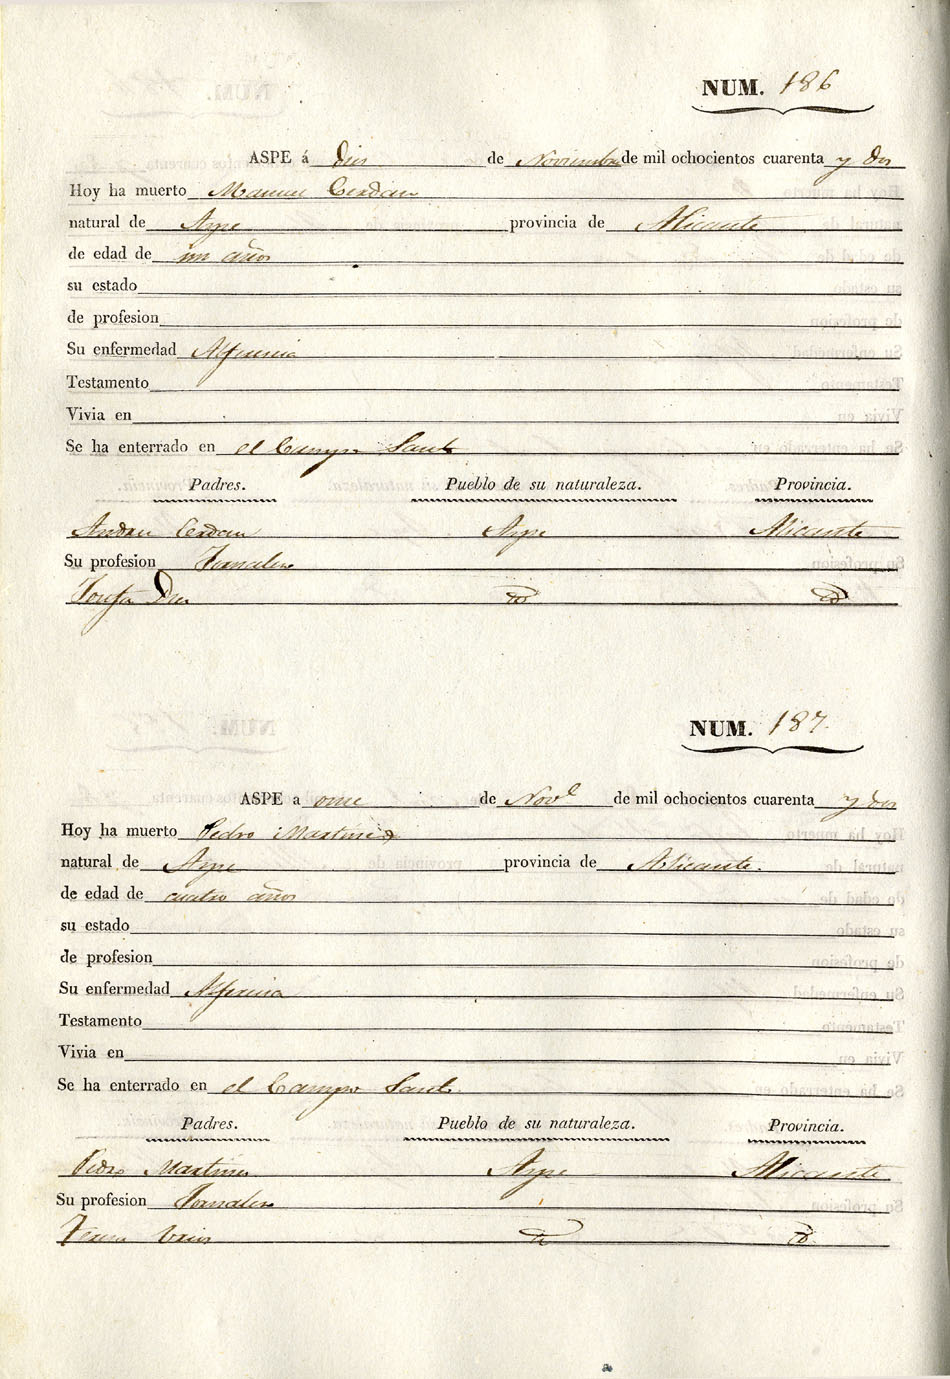 NUM. 186
ASPE á Dies de Noviembre de mil ochocientos cuarenta y dos
Hoy ha muerto Manuel Cerdan
natural de Aspe provincia de Alicante
de edad de un años
su estado
de profesion
Su enfermedad Alferecia
Testamento
Vivia en
Se ha enterrado en el Campo Santo
Padres. Pueblo de su naturaleza. Provincia.
Andres Cerdan Aspe Alicante
Su profesion Jornalero
Josefa Dies id id
NUM. 187.
ASPE a onse de Nov.e de mil ochocientos cuarenta y dos
Hoy ha muerto Pedro Martines
natural de Aspe provincia de Alicante.
de edad de cuatro años
su estado
de profesion
Su enfermedad Alferecia
Testamento
Vivia en
Se ha enterrado en el Campo Santo.
Padres. Pueblo de su naturaleza. Provincia.
Pedro Martines Aspe Alicante.
Su profesion Jornalero
Teresa id id.